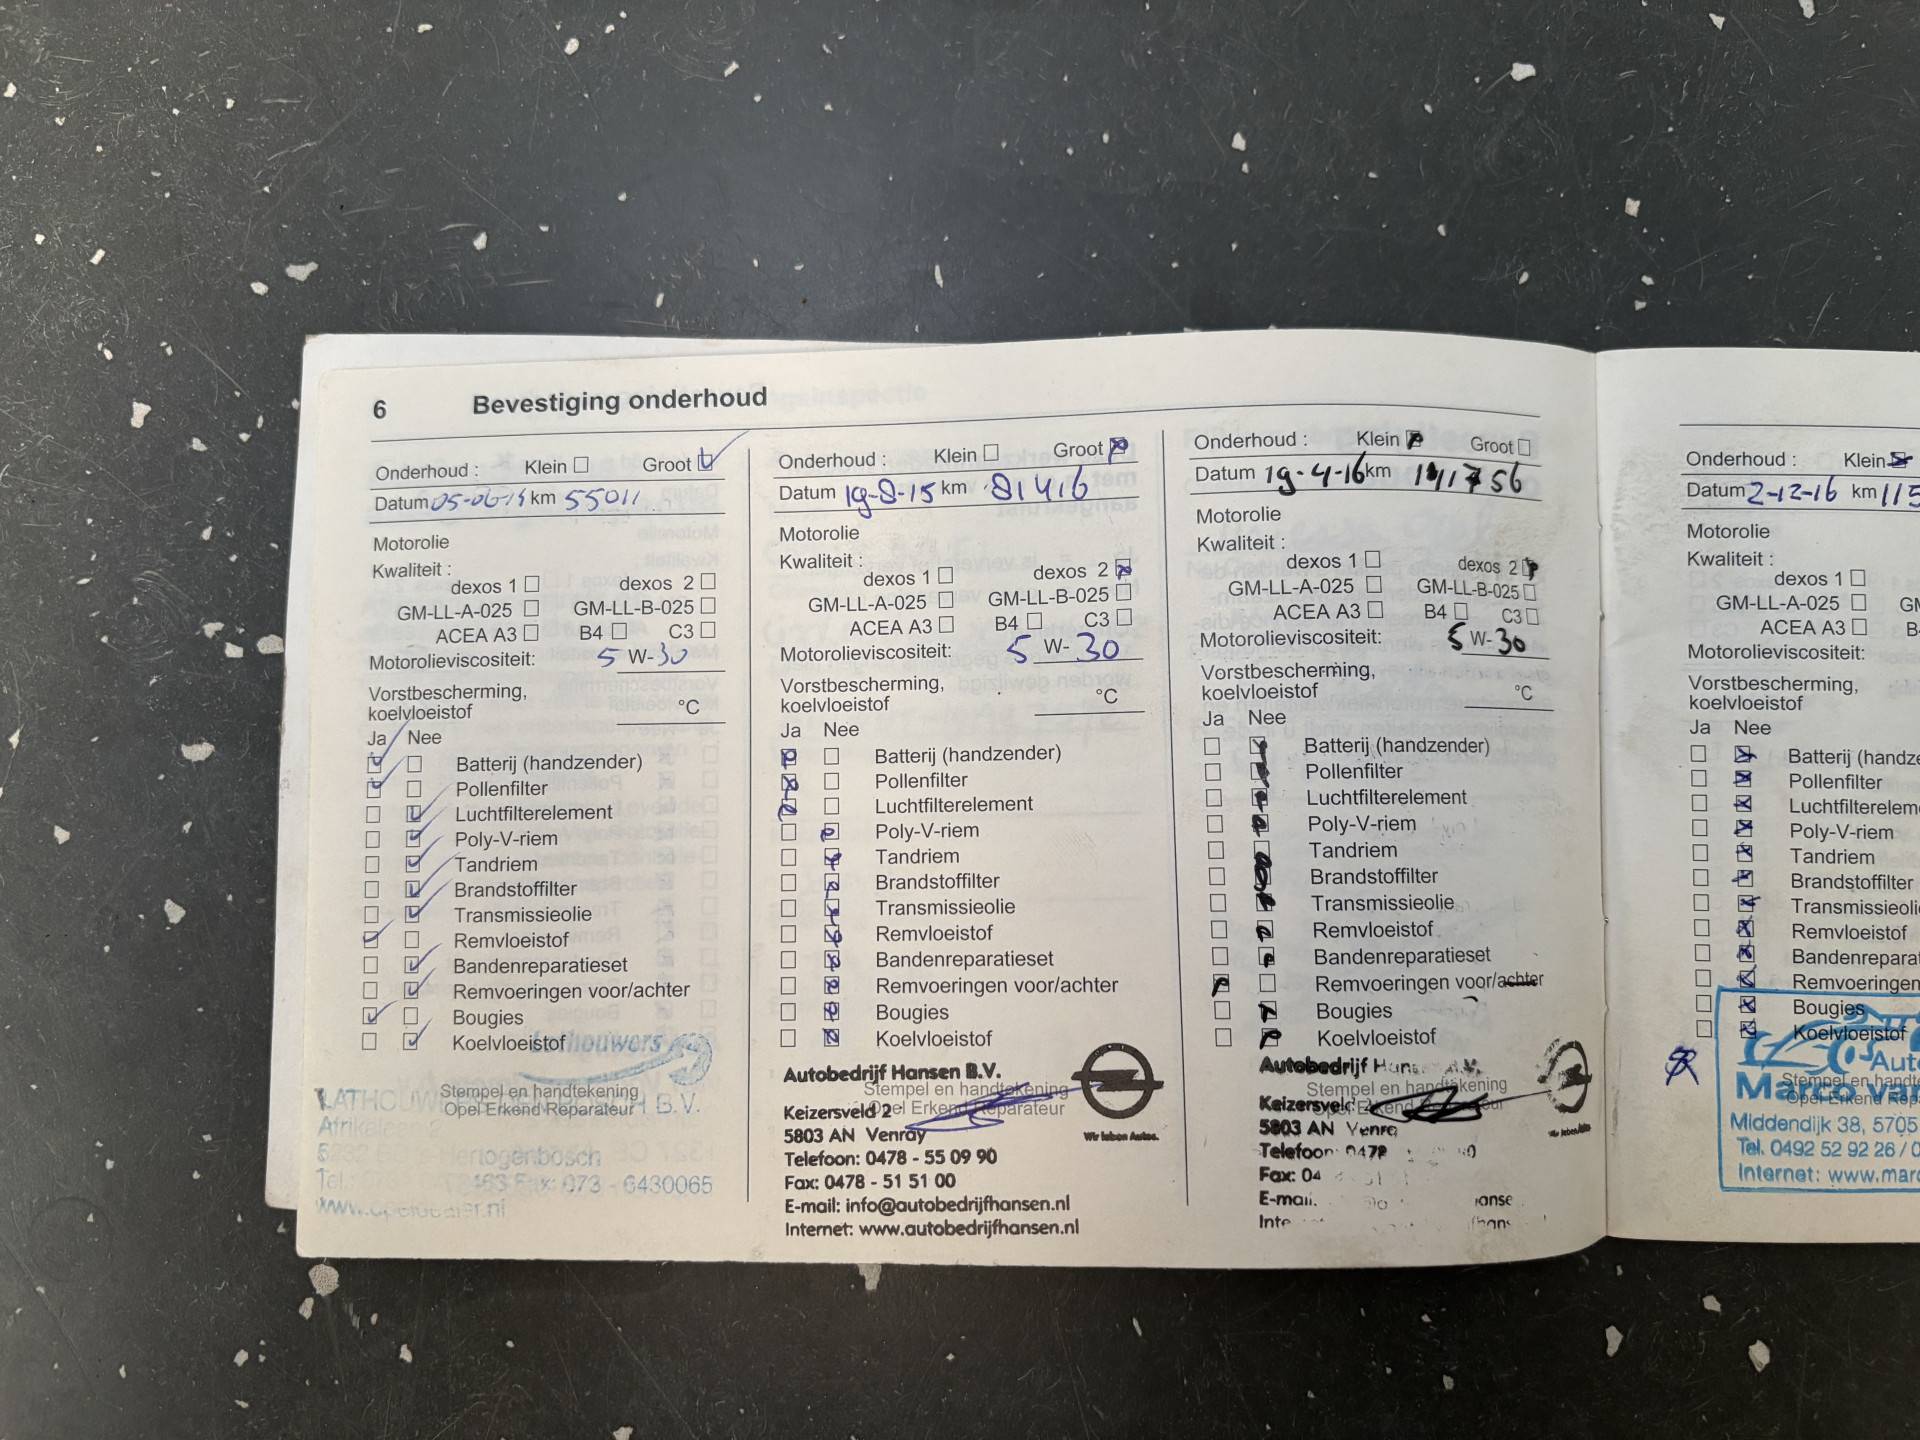 6 Bevestiging onderhoud
Onderhoud : Klein Groot
Datum 05-06-14 km 55011
Motorolie
Kwaliteit :
dexos 1 dexos 2
GM-LL-A-025 GM-LL-B-025
ACEA A3 B4 C3
Motorolieviscositeit: 5 W-30
Vorstbescherming,
koelvloeistof °C
Ja Nee
Batterij (handzender)
Pollenfilter
Luchtfilterelement
Poly-V-riem
Tandriem
Brandstoffilter
Transmissieolie
Remvloeistof
Bandenreparatieset
Remvoeringen voor/achter
Bougies
Koelvloeistof
Lathouwers
Stempel en handtekening
Opel Erkend Reparateur
B.V.
Fax: 073 - 6430065
Onderhoud : Klein Groot
Datum 19-8-15 km 81416
Motorolie
Kwaliteit :
dexos 1 dexos 2
GM-LL-A-025 GM-LL-B-025
ACEA A3 B4 C3
Motorolieviscositeit: 5 W- 30
Vorstbescherming,
koelvloeistof °C
Ja Nee
Batterij (handzender)
Pollenfilter
Luchtfilterelement
Poly-V-riem
Tandriem
Brandstoffilter
Transmissieolie
Remvloeistof
Bandenreparatieset
Remvoeringen voor/achter
Bougies
Koelvloeistof
Autobedrijf Hansen B.V.
Stempel en handtekening
Keizersveld 2
Opel Erkend Reparateur
5803 AN Venray
Wir leben Autos.
Telefoon: 0478 - 55 09 90
Fax: 0478 - 51 51 00
E-mail: info@autobedrijfhansen.nl
Internet: www.autobedrijfhansen.nl
Onderhoud : Klein Groot
Datum 19-4-16 km
Motorolie
Kwaliteit :
dexos 1 dexos 2
GM-LL-A-025 GM-LL-B-025
ACEA A3 B4 C3
Motorolieviscositeit: 5 W-30
Vorstbescherming,
koelvloeistof °C
Ja Nee
Batterij (handzender)
Pollenfilter
Luchtfilterelement
Poly-V-riem
Tandriem
Brandstoffilter
Transmissieolie
Remvloeistof
Bandenreparatieset
Remvoeringen voor/achter
Bougies
Koelvloeistof
Autobedrijf
Stempel en handtekening
Opel Erkend
5803 AN
Telefoon: 0478
Fax: 04
Onderhoud : Klein
Datum 2-12-16 km 115
Motorolie
Kwaliteit :
dexos 1
GM-LL-A-025 GM
ACEA A3 B
Motorolieviscositeit:
Vorstbescherming,
koelvloeistof
Ja Nee
Batterij (handze
Pollenfilter
Luchtfiltereleme
Poly-V-riem
Tandriem
Brandstoffilter
Transmissieolie
Remvloeistof
Bandenreparat
Remvoeringen
Bougies
Koelvloeistof
Auto
Stempel en handte
Marco van
Opel Erkend Repa
Middendijk 38, 5705
Tel. 0492 52 92 26 / 0
Internet: www.marc